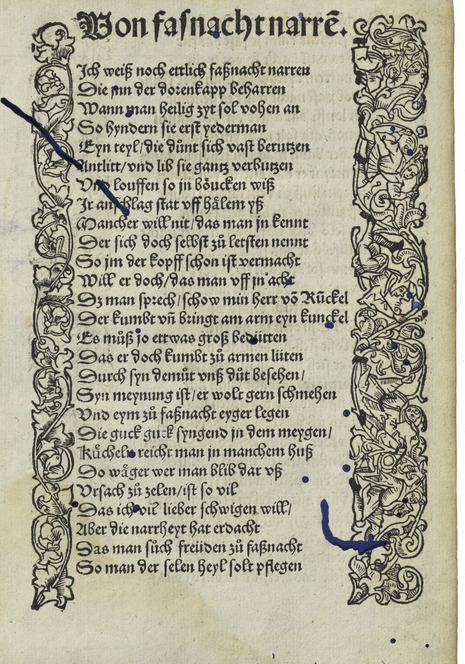 Von fasnacht narrē.
Ich weiß noch ettlich faßnacht narren
Die jnn der dorenkapp beharren
Wann man heilig zyt sol vohen an
So hyndern sie erst yederman
Eyn teyl / die dünt sich vast berutzen
Antlitt / vnd lib sie gantz verbutzen
Vnd louffen so jn böucken wiß
Ir anschlag stat vff hälem yß
Mancher will nit / das man jn kennt
Der sich doch selbst zů letsten nennt
So jm der kopff schon ist vermacht
Will er doch / das man vff jn acht
Dz man sprech / schow min herr võ Rückel
Der kumbt vñ bringt am arm eyn kunckel
Es můß jo ettwas groß bedütten
Das er doch kumbt zů armen lüten
Durch syn demůt vnß důt besehen /
Syn meynung ist / er wolt gern schmehen
Vnd eym zů faßnacht eyger legen
Die guck guck syngend jn dem meygen /
Küchelin reicht man in manchem huß
Do wäger wer man blib dar vß
Vrsach zů zelen / ist so vil
Das ich vil lieber schwigen will /
Aber die narrheyt hat erdacht
Das man sůch freüden zů faßnacht
So man der selen heyl solt pflegen